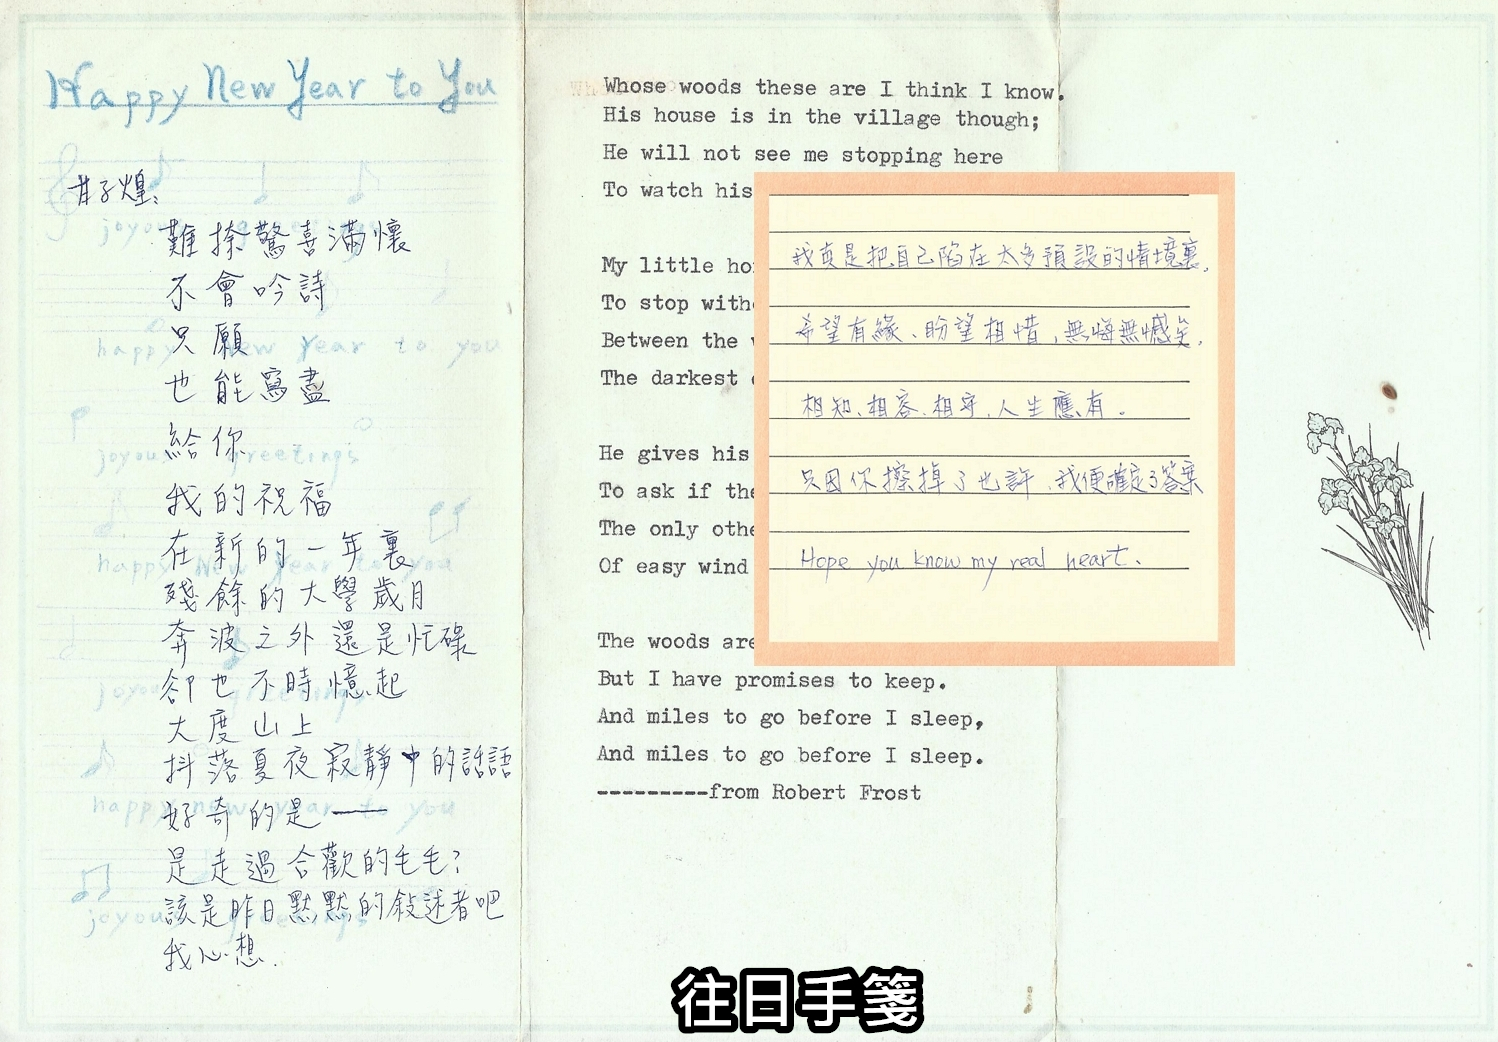 Happy New Year to You
子煌:
難捺驚喜滿懷
不會吟詩
只願
也能寫盡
給你
我的祝福
在新的一年裏
殘餘的大學歲月
奔波之外還是忙碌
卻也不時憶起
大度山上
抖落夏夜寂靜中的話語
好奇的是——
是走過合歡的毛毛?
該是昨日默默的敍述者吧
我心想.
Whose woods these are I think I know.
His house is in the village though;
He will not see me stopping here
To watch his
My little ho
To stop with
Between the
The darkest
He gives his
To ask if the
The only othe
Of easy wind
The woods are
But I have promises to keep.
And miles to go before I sleep,
And miles to go before I sleep.
---------from Robert Frost
我真是把自己陷在太多預設的情境裏.
希望有緣、盼望相惜,無悔無憾矣.
相知、相容、相守,人生應有.
只因你擦掉了也許,我便確定了答案
Hope you know my real heart.
joyous greetings
happy new year to you
joyous greetings
happy New Year to you
joyous greetings
happy new year to you
joyous greetings
往日手箋